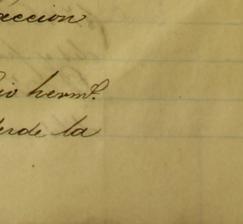 accion
io hermº.
erde la